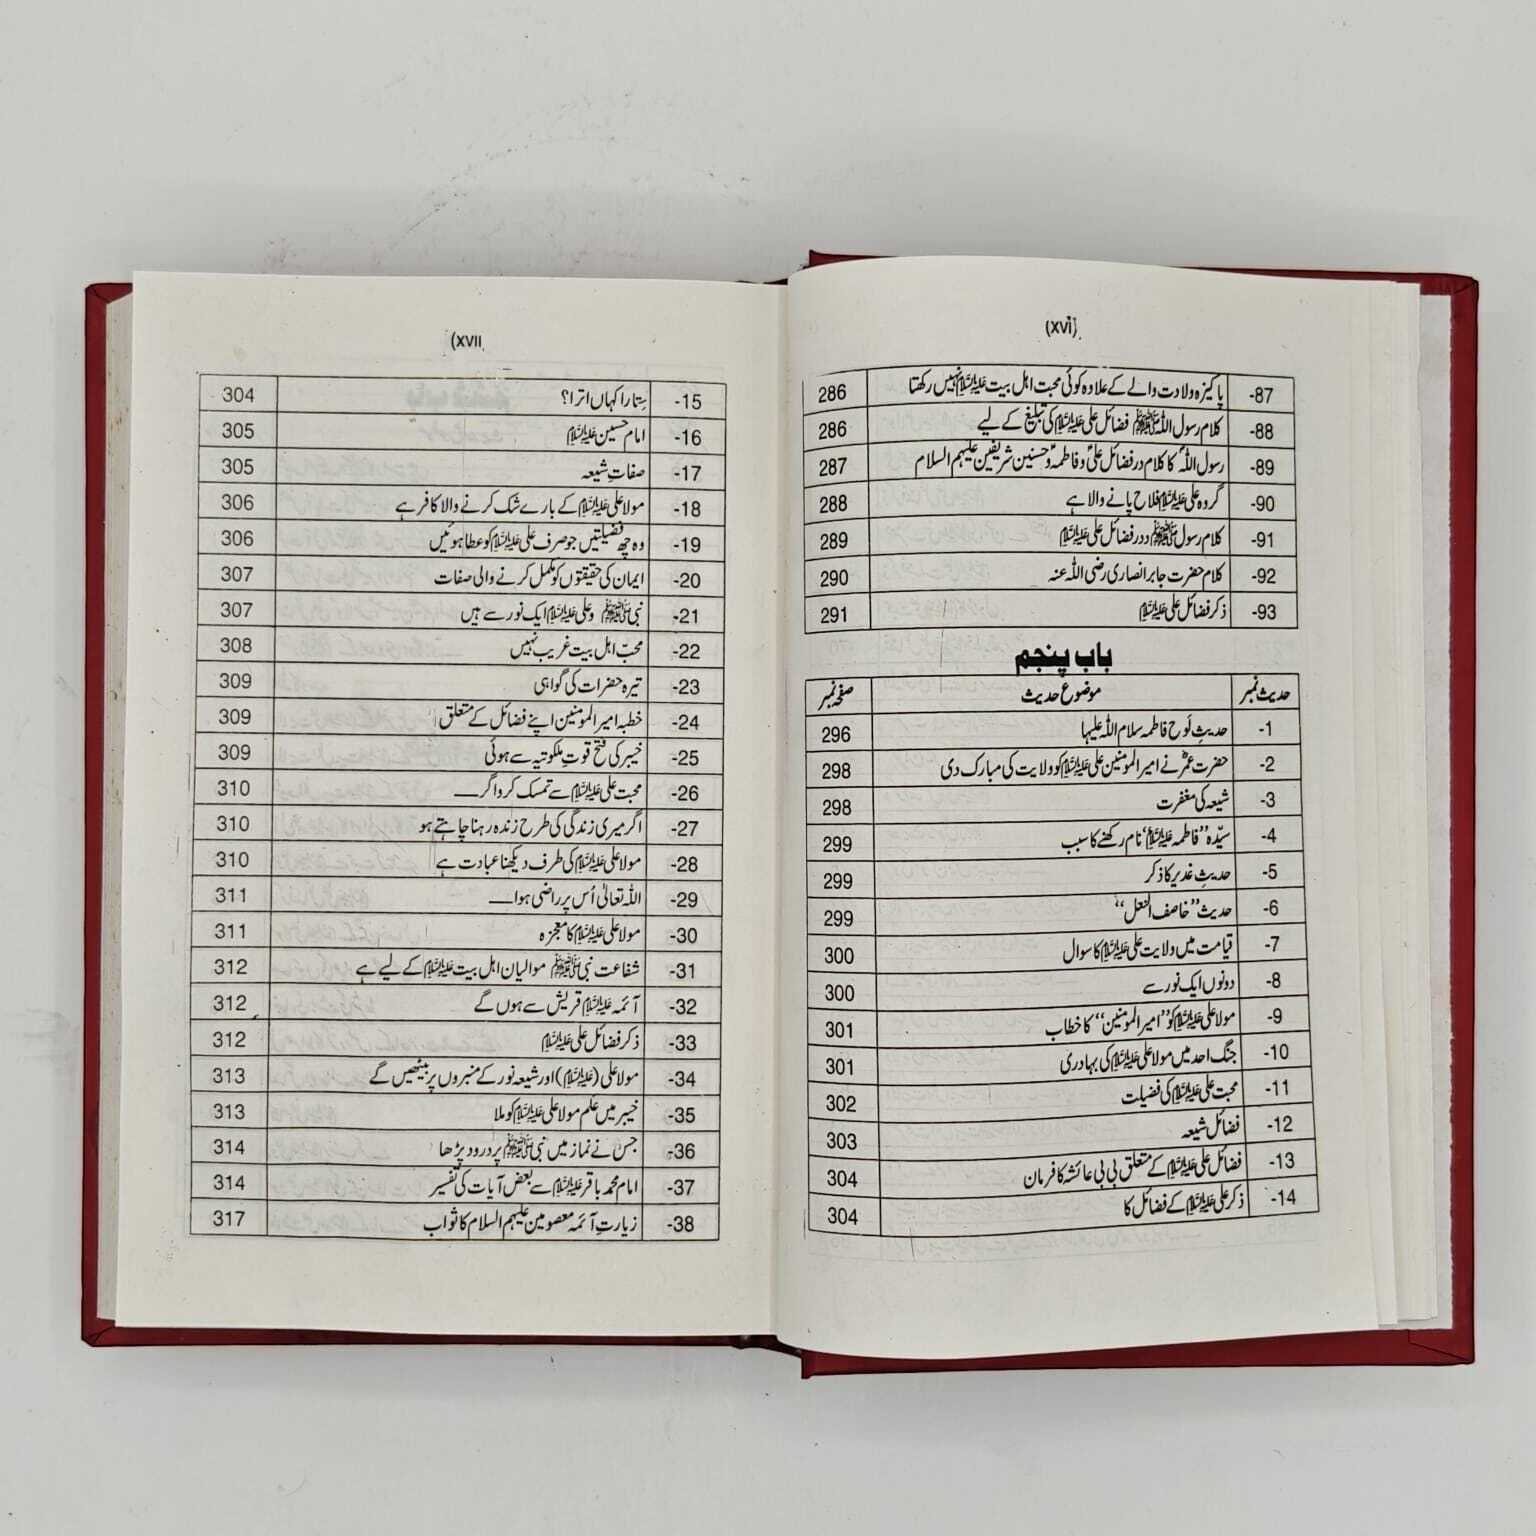 (xvi)
-87 پاکیزہ ولادت والے کے علاوہ کوئی محبت اہل بیت علیہ السلام نہیں رکھتا 286
-88 کلام رسول اللہ ﷺ فضائل علی علیہ السلام کی تبلیغ کے لیے 286
-89 رسول اللہؐ کا کلام در فضائل علیؑ و فاطمہؑ و حسنین شریفین علیہم السلام 287
-90 گروہ علی علیہ السلام فلاح پانے والا ہے 288
-91 کلام رسول ﷺ دور فضائل علی علیہ السلام 289
-92 کلام حضرت جابر انصاری رضی اللہ عنہ 290
-93 ذکر فضائل علی علیہ السلام 291
باب پنجم
حدیث نمبر موضوع حدیث صفحہ نمبر
-1 حدیثِ لَوح فاطمہ سلام اللہ علیہا 296
-2 حضرت عمرؓ نے امیر المومنین علی علیہ السلام کو ولایت کی مبارک دی 298
-3 شیعہ کی مغفرت 298
-4 سیّدہ ”فاطمہ علیہ السلام“ نام رکھنے کا سبب 299
-5 حدیثِ غدیر کا ذکر 299
-6 حدیث ”خاصف النعل“ 299
-7 قیامت میں ولایت علی علیہ السلام کا سوال 300
-8 دونوں ایک نور سے 300
-9 مولا علی علیہ السلام کو ”امیر المومنین“ کا خطاب 301
-10 جنگ احد میں مولا علی علیہ السلام کی بہادری 301
-11 محبت علی علیہ السلام کی فضیلت 302
-12 فضائل شیعہ 303
-13 فضائل علی علیہ السلام کے متعلق بی بی عائشہ کا فرمان 304
-14 ذکر علی علیہ السلام کے فضائل کا 304
(xvii
-15 ستارا کہاں اترا؟ 304
-16 امام حسین علیہ السلام 305
-17 صفاتِ شیعہ 305
-18 مولا علی علیہ السلام کے بارے شک کرنے والا کافر ہے 306
-19 وہ چھ فضیلتیں جو صرف علی علیہ السلام کو عطا ہوئیں 306
-20 ایمان کی حقیقتوں کو مکمل کرنے والی صفات 307
-21 نبی ﷺ و علی علیہ السلام ایک نور سے ہیں 307
-22 محبّ اہل بیت غریب نہیں 308
-23 تیرہ حضرات کی گواہی 309
-24 خطبہ امیر المومنین اپنے فضائل کے متعلق 309
-25 خیبر کی فتح قوتِ ملکوتیہ سے ہوئی 309
-26 محبت علی علیہ السلام سے تمسک کرو اگر.... 310
-27 اگر میری زندگی کی طرح زندہ رہنا چاہتے ہو 310
-28 مولا علی علیہ السلام کی طرف دیکھنا عبادت ہے 310
-29 اللہ تعالیٰ اُس پر راضی ہوا.... 311
-30 مولا علی علیہ السلام کا معجزہ 311
-31 شفاعت نبی ﷺ موالیان اہل بیت علیہ السلام کے لیے ہے 312
-32 آئمہ علیہ السلام قریش سے ہوں گے 312
-33 ذکر فضائل علی علیہ السلام 312
-34 مولا علی (علیہ السلام) اور شیعہ نور کے منبروں پر بیٹھیں گے 313
-35 خیبر میں علم مولا علی علیہ السلام کو ملا 313
-36 جس نے نماز میں نبی ﷺ پر درود پڑھا 314
-37 امام محمد باقر علیہ السلام سے بعض آیات کی تفسیر 314
-38 زیارتِ آئمہ معصومین علیہم السلام کا ثواب 317